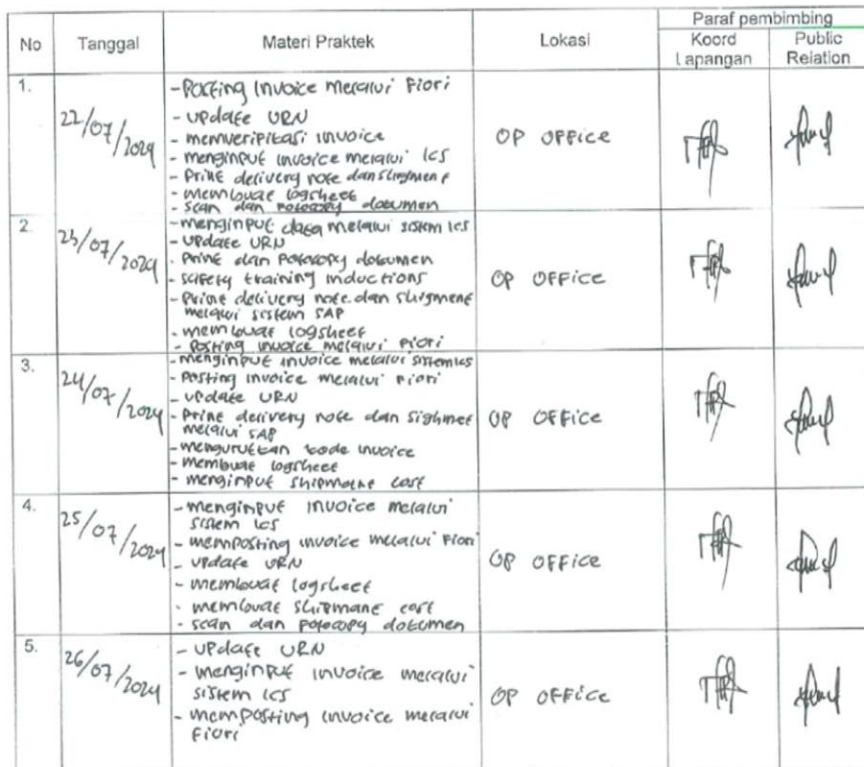 No Tanggal Materi Praktek Lokasi Paraf pembimbing
Koord Lapangan Public Relation
1. 22/07/2024 OP OFFICE
- Posting Invoice melalui Fiori
- update URN
- memveripikasi invoice
- menginput invoice melalui ICS
- Print delivery note dan Shigment
- membuat logsheet
- scan dan potocopy dokumen
2. 23/07/2024 OP OFFICE
- menginput data melalui sistem ICS
- update URN
- Print dan potocopy dokumen
- safety training inductions
- Print delivery note dan Shigment
melalui sistem SAP
- membuat logsheet
- posting invoice melalui Fiori
3. 24/07/2024 OP OFFICE
- menginput invoice melalui sistem ics
- Posting invoice melalui Fiori
- update URN
- Print delivery note dan Sighmet
melalui SAP
- mengurutkan kode invoice
- membuat logsheet
- menginput shipmaint cost
4. 25/07/2024 OP OFFICE
- menginput invoice melalui
sistem ICS
- memposting invoice melalui Fiori
- update URN
- membuat logsheet
- membuat shipmane cost
- scan dan potocopy dokumen
5. 26/07/2024 OP OFFICE
- update URN
- menginput invoice melalui
sistem ICS
- memposting invoice melalui
Fiori